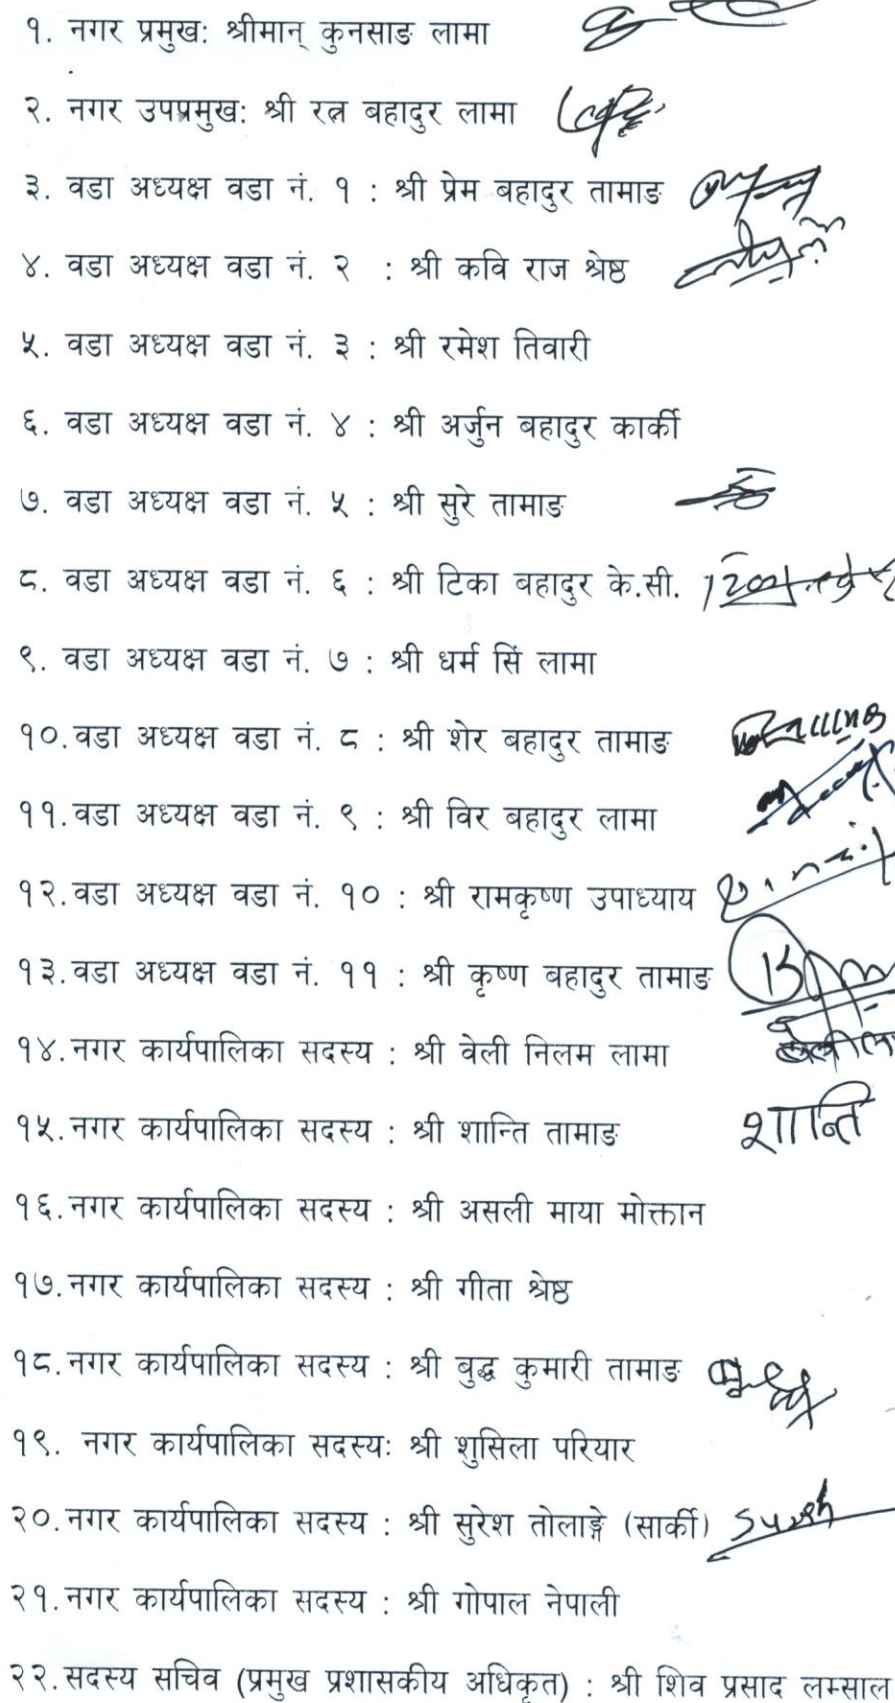 १. नगर प्रमुख: श्रीमान् कुनसाङ लामा
२. नगर उपप्रमुख: श्री रत्न बहादुर लामा
३. वडा अध्यक्ष वडा नं. १ : श्री प्रेम बहादुर तामाङ
४. वडा अध्यक्ष वडा नं. २ : श्री कवि राज श्रेष्ठ
५. वडा अध्यक्ष वडा नं. ३ : श्री रमेश तिवारी
६. वडा अध्यक्ष वडा नं. ४ : श्री अर्जुन बहादुर कार्की
७. वडा अध्यक्ष वडा नं. ५ : श्री सुरे तामाङ
८. वडा अध्यक्ष वडा नं. ६ : श्री टिका बहादुर के.सी.
९. वडा अध्यक्ष वडा नं. ७ : श्री धर्म सिं लामा
१०. वडा अध्यक्ष वडा नं. ८ : श्री शेर बहादुर तामाङ
११. वडा अध्यक्ष वडा नं. ९ : श्री विर बहादुर लामा
१२. वडा अध्यक्ष वडा नं. १० : श्री रामकृष्ण उपाध्याय
१३. वडा अध्यक्ष वडा नं. ११ : श्री कृष्ण बहादुर तामाङ
१४. नगर कार्यपालिका सदस्य : श्री वेली निलम लामा
१५. नगर कार्यपालिका सदस्य : श्री शान्ति तामाङ शान्ति
१६. नगर कार्यपालिका सदस्य : श्री असली माया मोक्तान
१७. नगर कार्यपालिका सदस्य : श्री गीता श्रेष्ठ
१८. नगर कार्यपालिका सदस्य : श्री बुद्ध कुमारी तामाङ
१९. नगर कार्यपालिका सदस्यः श्री शुसिला परियार
२०. नगर कार्यपालिका सदस्य : श्री सुरेश तोलाङ्गे (सार्की)
२१. नगर कार्यपालिका सदस्य : श्री गोपाल नेपाली
२२. सदस्य सचिव (प्रमुख प्रशासकीय अधिकृत) : श्री शिव प्रसाद लम्साल